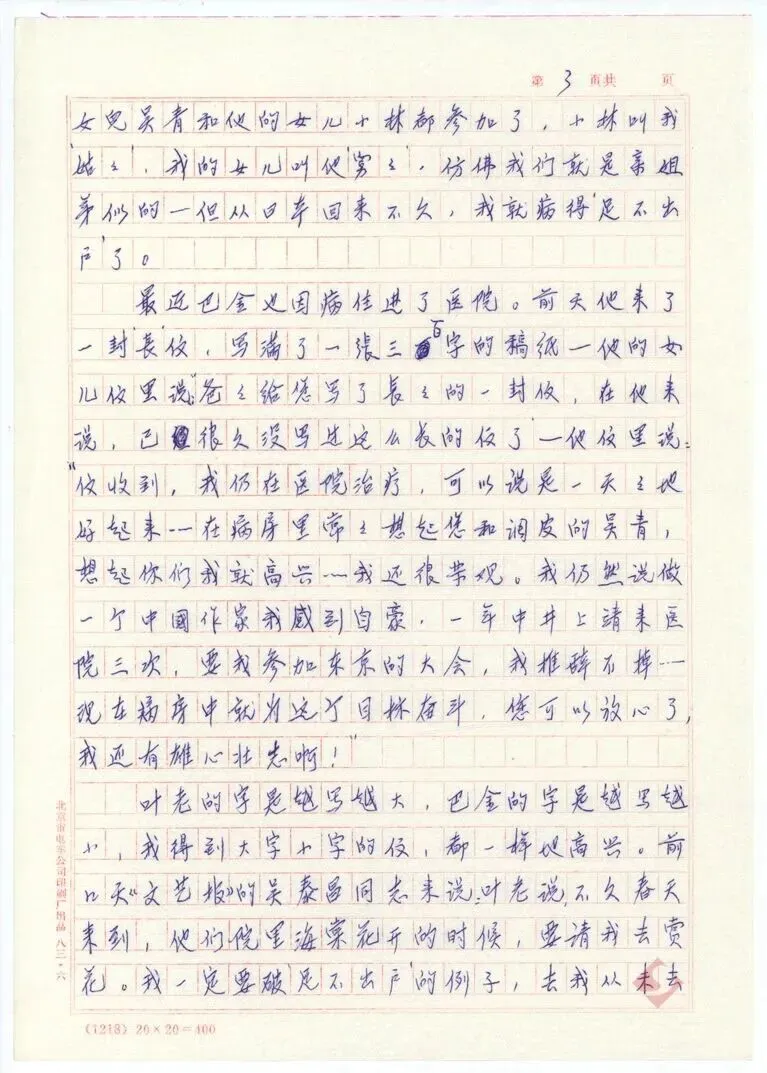 第 3 页共 页
女兒吴青和他的女儿小林都参加了，小林叫我
“姑々”，我的女儿叫他“舅々”，仿佛我们就是亲姐
弟似的—但从日本回来不久，我就病得“足不出
户”了。
最近巴金也因病住进了医院。前天他来了
一封“长”信，写满了一張三百字的稿纸—他的女
儿信里说：“爸々给您写了長々的一封信，在他来
说，已很久没写过这么长的信了”—他信里说：
“信收到，我仍在医院治疗，可以说是一天々地
好起来……在病房里常々想起您和调皮的吴青，
想起你们我就高兴……我还很乐观。我仍然说做
一个中國作家我感到自豪，一年中井上靖来医
院三次，要我参加东京的大会，我推辞不掉……
现在病房中就为这个目标奋斗，您可以放心了，
我还有雄心壮志啊！”
叶老的字是越写越大，巴金的字是越写越
小，我得到大字小字的信，都一样地高兴。前
几天《文艺报》的吴泰昌同志来说：叶老说，不久春天
来到，他们院里海棠花开的时候，要请我去赏
花。我一定要破“足不出户”的例子，去我从未去
北京市电车公司印刷厂出品 八三·六
(1218) 20×20=400